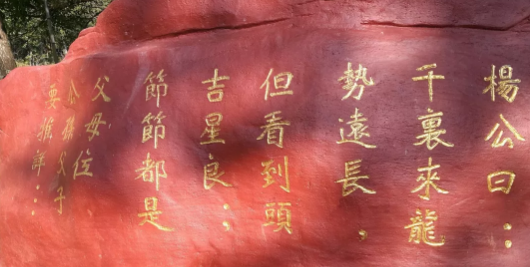 楊公曰：
千裏來龍
勢遠長，
但看到頭
吉星良；
節節都是
父母位
孫父子
要推詳：